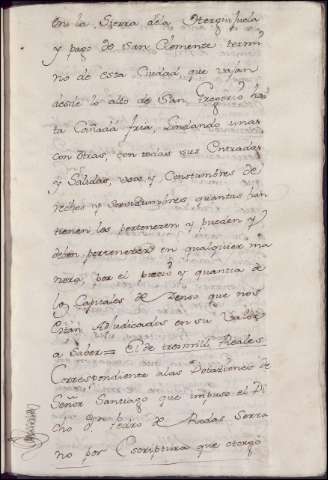 en la Sierra de la Sterquijuela
y pago de San Clemente termi
no de esta Ciudad, que vajan
desde lo alto de San Gregorio has
ta Cañada fria, Lindando unas
con otras, con todas sus Entradas
y Salidas, usos, y Constumbres de
rechos y servidumbres quantas han
tienen les pertenezen y pueden y
deben pertenezer en qualquier ma
nera, por el precio y quantia de
los Capitales de Zenso que nos
están Adjudicados en su Valor
a Saber= El de tres mil Reales
Correspondiente a las Dotaciones de
Señor Santiago que impuso el Di
cho Dn. Pedro de Ruedas Serra
no por Escriptura que otorgó